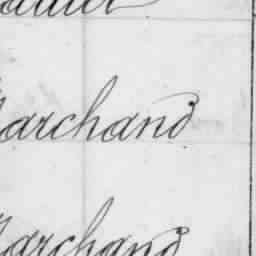 Marchand
Marchand